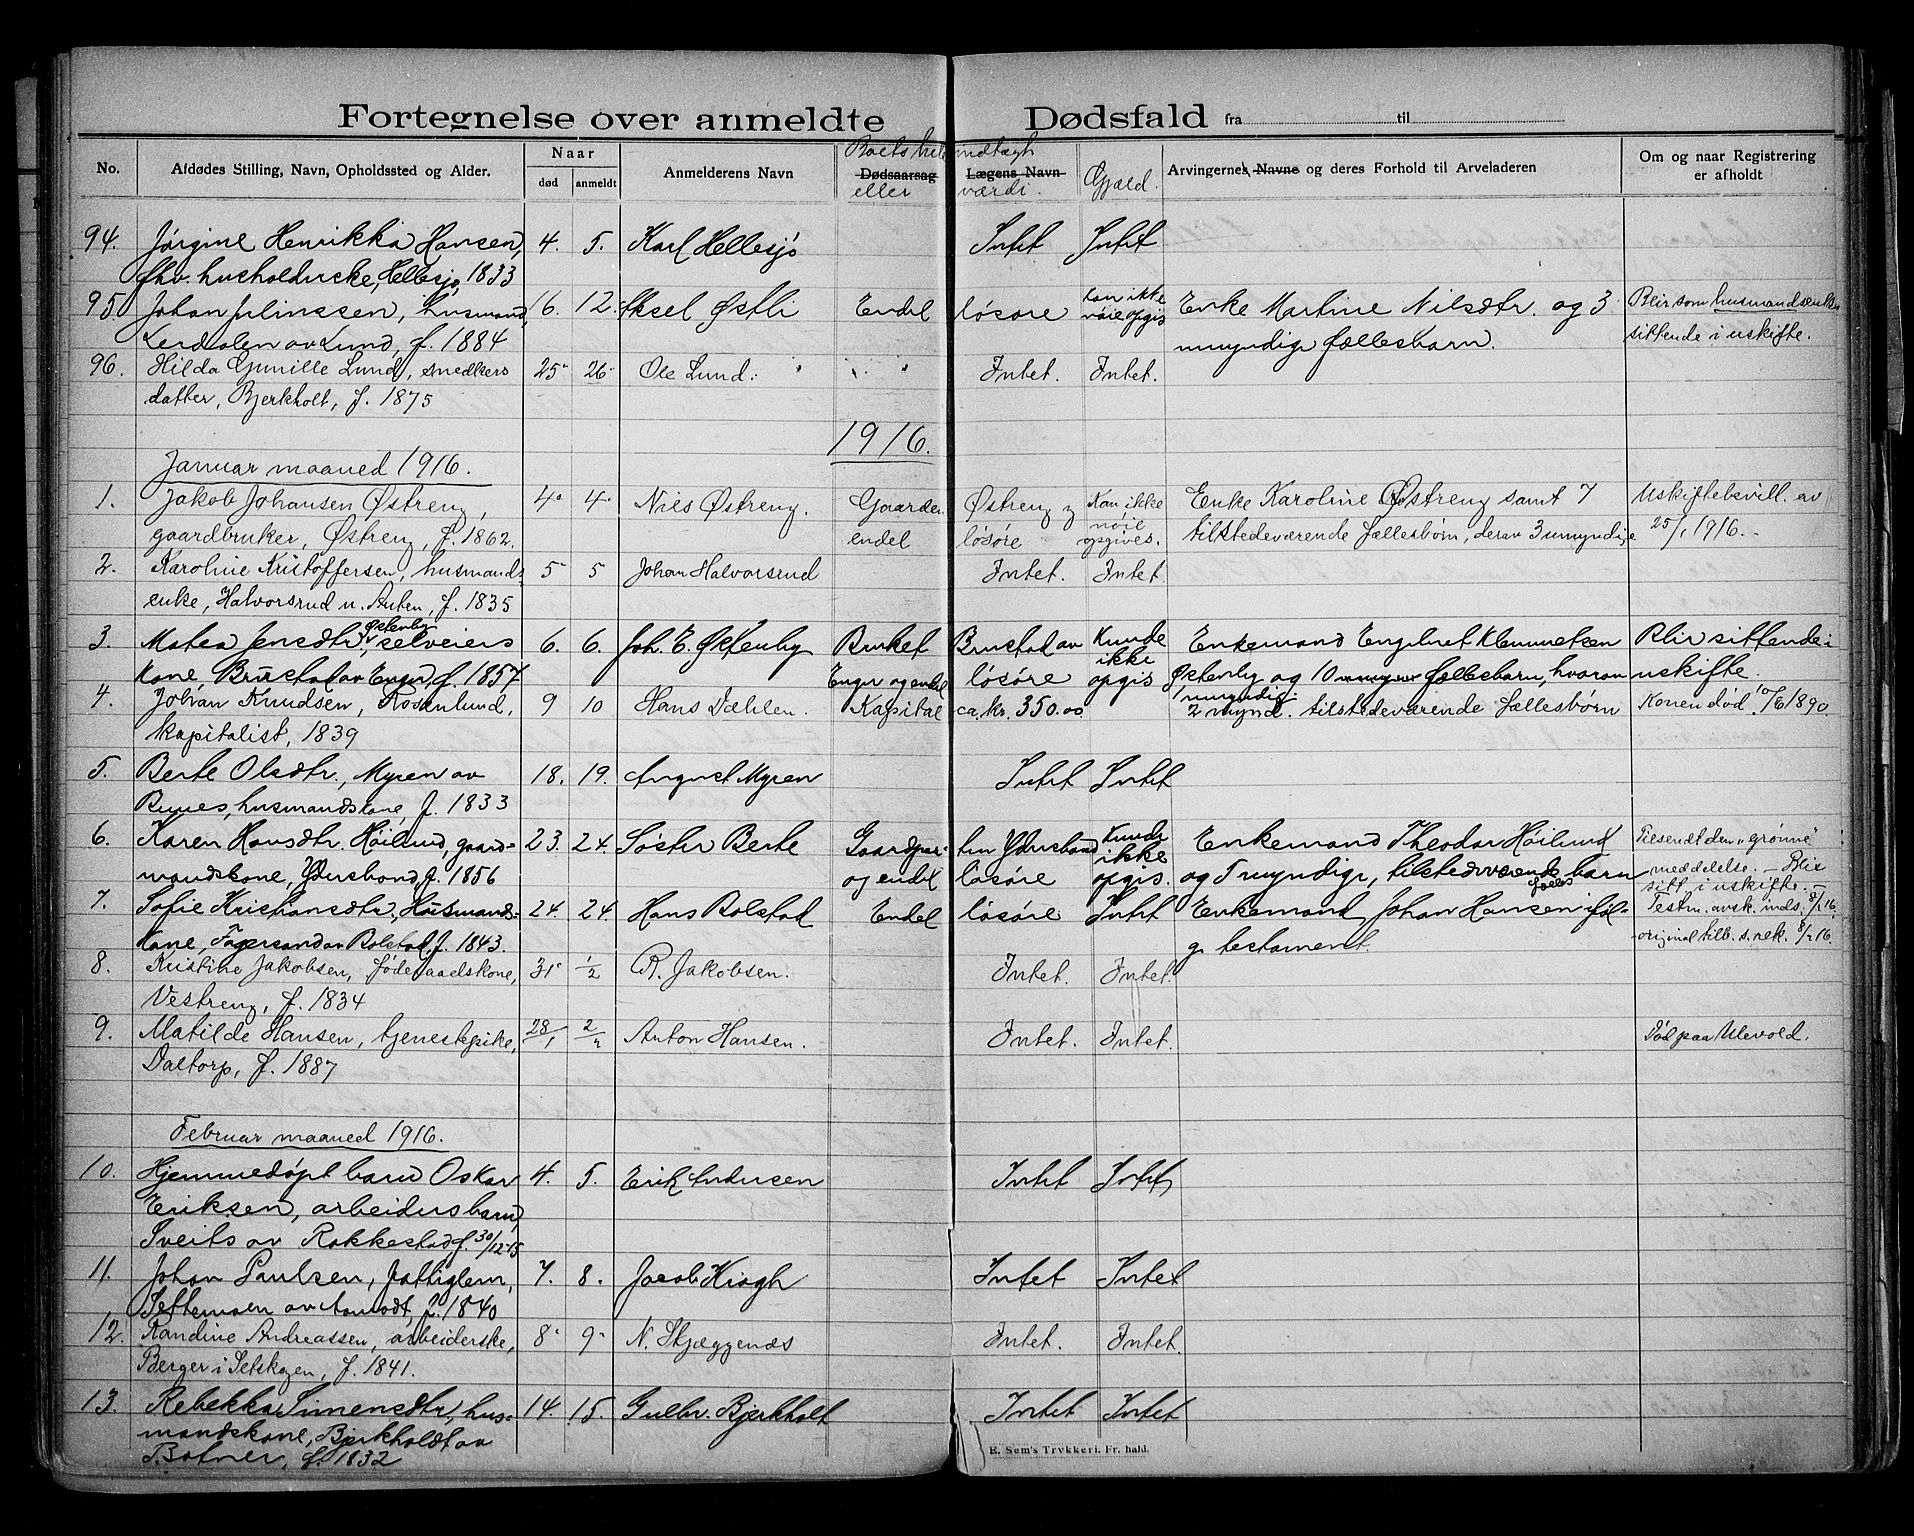 Fortegnelse over anmeldte Dødsfald fra til
No. Afdødes Stilling, Navn, Opholdssted og Alder. Naar Anmelderens Navn Boets
død anmeldt Dødsaarsag Lægens Navn Gjæld. Arvingernes Navne og deres Forhold til Arveladeren Om og naar Registrering
eller værdi. er afholdt
94. Jørgine Henrikka Hansen, 4. 5. Karl Hellesjø Intet Intet
fhv. husholderske, Hellesjø, 1833
95. Johan Julinssen, husmand, 16. 12. Aksel Østli Endel løsøre kan ikke Enke Martine Nilsdtr. og 3 Blir som husmandsenke
Lerdalen av Lund, f. 1884 nøie opgis umyndige fællesbarn. sittende i uskifte.
96. Hilda Gunille Lund, snedkers 25 26 Ole Lund. Intet. Intet.
datter, Bjerkholt, f. 1875
1916.
Januar maaned 1916.
1. Jakob Johansen Østreng, 4. 4. Nils Østreng. Gaarden Østreng Kan ikke Enke Karoline Østreng samt 7 Uskiftebevill. av
gaardbruker, Østreng, f. 1862. endel løsøre nøie opgives. tilstedeværende fællesbørn, derav 3 umyndige 25/1 1916.
2. Karoline Kristoffersen, husmands 5 5 Johan Halvorsrud Intet. Intet.
enke, Halvorsrud u. Anten, f. 1835
3. Matea Jensdtr. Østenby, selveiers 6. 6. Joh. E. Østenby Bruket Brustad av Kunde Enkemand Engebret Klemmetsen Blir sittende i
kone, Brustad av Enger, f. 1857 Enger og endel løsøre ikke opgis Østenby og 10 fællesbarn, hvorav uskifte.
4. Johan Knudsen, Rosenlund, 9 10 Hans Dæhlen Kapital ca. kr. 350.00 1 umyndig. 2 mynd. tilstedeværende fællesbørn Konen død 10/6 1890.
kapitalist, 1839
5. Berte Olsdtr., Myren av 18. 19. August Myren Intet Intet
Bunes, husmandskone, f. 1833
6. Karen Hansdtr. Høilund, gaard- 23. 24. Søster Berte Gaardpar- ten Ydersbond Kunde Enkemand Theodor Høilund Tilsendt den "grønne"
mandskone, Ydersbond, f. 1856 og endel løsøre ikke opgis. og 5 myndige, tilstedeværende barn meddelelse. – Blir
sitt. i uskifte.
7. Sofie Kristiansdtr., Husmands- 24. 24. Hans Bolstad Endel løsøre Intet Enkemand Johan Hansen iføl- Testm. avsk. inds. 8/2 16.
kone, Fagersand av Bolstad, f. 1843. ge testament. original tilb. s. rek. 8/2 16.
8. Kristine Jakobsen, føderaadskone, 31 1/2 R. Jakobsen. Intet. Intet.
Vestreng, f. 1834
9. Matilde Hansen, tjenestepike, 28/1 2/2 Anton Hansen. Intet. Intet. Død paa Ulevold.
Daltorp, f. 1887
Februar maaned 1916.
10. Hjemmedøpt barn Oskar 4. 5. Erik Andersen Intet Intet
Eriksen, arbeidersbarn,
Sveits av Rakkestad, f. 30/12-15
11. Johan Paulsen, fattiglem, 7. 8. Jacob Krogh Intet Intet
Settemoen av Aamodt, f. 1840
12. Randine Andreassen, arbeiderske, 8 9 N. Skjæggenæs Intet. Intet.
Berger i Setskogen, f. 1841.
13. Rebekka Simensdtr., hus- 14. 15. Gulbr. Bjerkholt Intet Intet
mandskone, Bjerkholdt av
Botner, f. 1832
E. Sem's Trykkeri. Fr. hald.